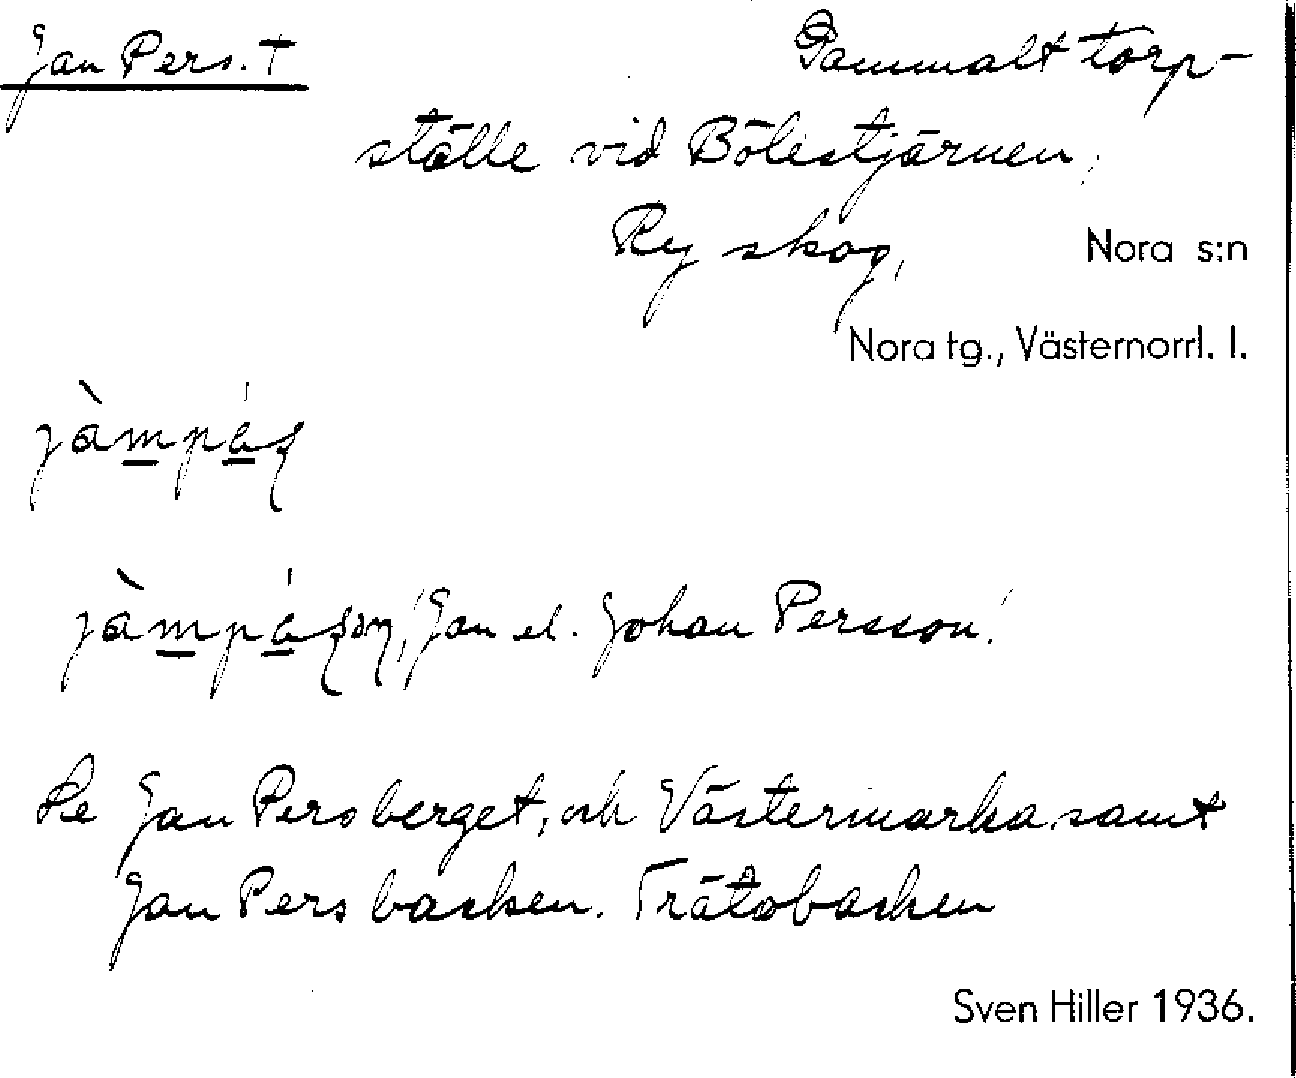 Jan Pers. †
Gammalt torp-
ställe vid Bölestjärnen,
Ry skog,
Nora s:n
Nora tg., Västernorrl. l.
jàmpás
jàmpáson, 'Jan el. Johan Persson'.
Se Jan Persberget, och Västermarka samt
Jan Persbacken. Trätobacken
Sven Hiller 1936.